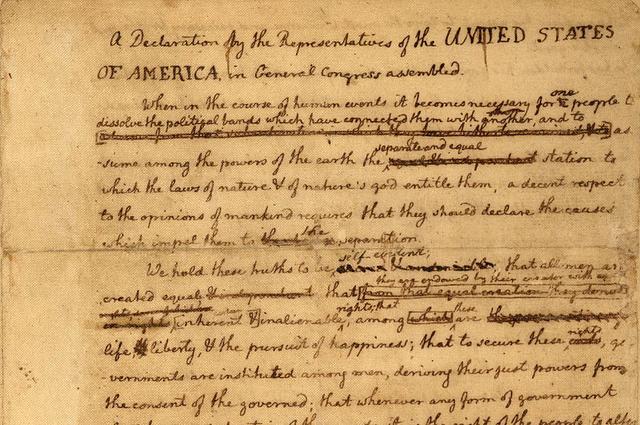 A Declaration by the Representatives of the UNITED STATES
OF AMERICA, in General Congress assembled.
When in the course of human events it becomes necessary for one people to
dissolve the political bands which have connected them with another, and to
as
-sume among the powers of the earth the separate and equal station to
which the laws of nature & of nature's god entitle them, a decent respect
to the opinions of mankind requires that they should declare the causes
which impel them to the separation.
We hold these truths to be self-evident; that all men are
created equal that they are endowed by their creator with
from that equal creation they derive
rights; that
inherent & inalienable, among which these are
life liberty, & the pursuit of happiness; that to secure these rights, go
-vernments are instituted among men, deriving their just powers from
the consent of the governed; that whenever any form of government
it is the right of the people to alter